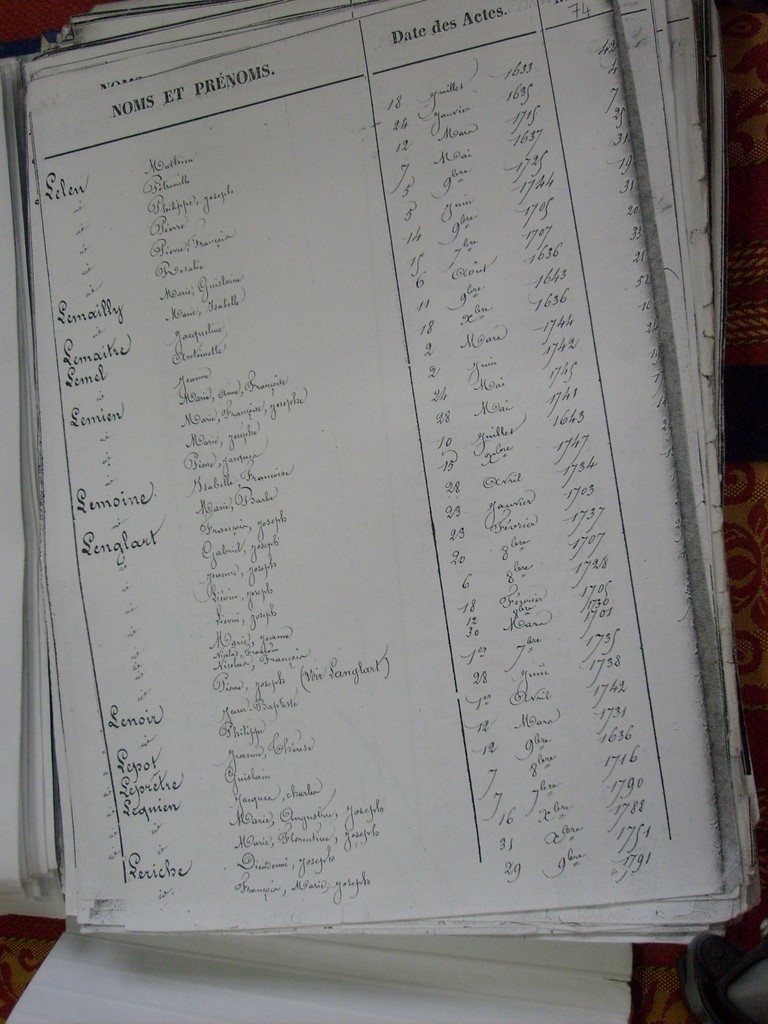 NOMS
NOMS ET PRÉNOMS. Date des Actes. 74
Lelen Mathieu 18 juillet 1633 42
id Pétronille 24 janvier 1635 4
id Philippe, joseph 12 Mars 1715 7
id Pierre 7 Mai 1637 25
id Pierre, François 5 9bre 1725 31
id Rosalie 5 juin 1744 19
Lemailly Marie, Guislaine 14 9bre 1705 31
id Marie, Isabelle 15 7bre 1707 20
Lemaitre Jacqueline 6 Août 1636 33
Lemel Antoinette 11 9bre 1643 21
id Jeanne 18 Xbre 1636 52
Lemien Marie, Anne, Françoise 2 Mars 1744 10
id Marie, Françoise, josephe 2 juin 1742 24
id Marie, josephe 24 Mai 1745
id Pierre, jacques 28 Mai 1741
Lemoine Isabelle, Françoise 10 juillet 1643
id Marie, Barbe 15 Xbre 1747
Lenglart François, joseph 28 Avril 1734
id Gabriel, joseph 23 janvier 1703
id jeanne, joseph 23 Février 1737
id Liévin, joseph 20 8bre 1707
id Liévin, joseph 6 8bre 1728
id Marie, jeanne 18 Février 1705
id Nicolas, François 12 8bre 1730
id Nicolas, François 30 Mars 1701
id Pierre, joseph (voir Langlart) 1er 7bre 1735
Lenoir Jean-Baptiste 28 juin 1738
id Philippe 1er Avril 1742
Lepot Jeanne, Thérèse 12 Mars 1731
Leprêtre Guislain 12 9bre 1636
Lequien Jacques, charles 7 8bre 1716
id Marie, Augustine, joseph 7 7bre 1790
id Marie, Florentine, joseph 16 Xbre 1788
Leriche Dieudonné, joseph 31 Xbre 1751
id François, Marie, joseph 29 9bre 1791